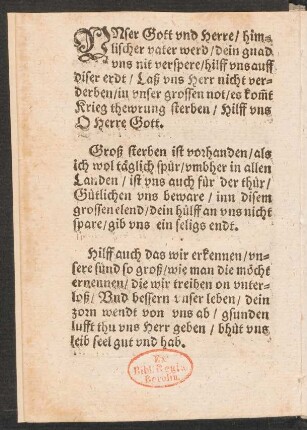 UNser Gott vnd Herre/ him-
lischer vater werd/ dein gnad
vns nit verspere/ hilff vns auff
diser erdt/ Laß vns Herr nicht ver-
derben/ in vnser grossen not/ es kom̃t
Krieg thewrung sterben/ Hilff vns
O Herre Gott.
Groß sterben ist vorhanden/ als
ich wol täglich spür/ vmbher in allen
Landen/ ist vns auch für der thür/
Gütlichen vns beware/ inn disem
grossen elend/ dein hülff an vns nicht
spare/ gib vns ein seligs endt.
Hilff auch das wir erkennen/ vn-
sere sünd so groß/ wie man die möcht
ernennen/ die wir treiben on vnter-
loß/ Vnd bessern vnser leben/ dein
zorn wendt von vns ab/ gsunden
lufft thu vns Herr geben/ bhüt vns
leib seel gut vnd hab.
Ex
Bibl. Regia
Berolin.